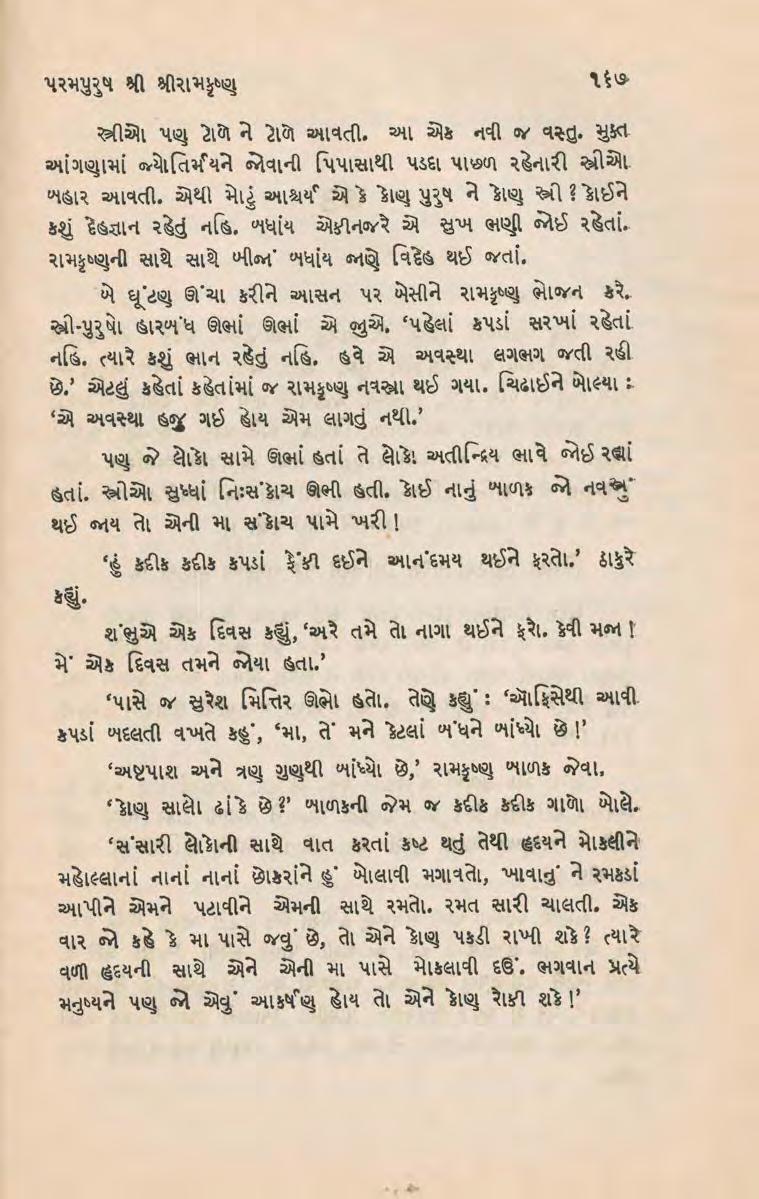 પરમપુરુષ શ્રી શ્રીરામકૃષ્ણ ૧૬૭
સ્ત્રીઓ પણ ટોળે ને ટોળે આવતી. આ એક નવી જ વસ્તુ. મુક્ત
આંગણામાં જ્યોતિર્મયને જોવાની પિપાસાથી પડદા પાછળ રહેનારી સ્ત્રીઓ
બહાર આવતી. એથી મોટું આશ્ચર્ય એ કે કોણ પુરુષ ને કોણ સ્ત્રી ? કોઈને
કશું દેહજ્ઞાન રહેતું નહિ. બધાંય એકીનજરે એ સુખ ભણી જોઈ રહેતાં.
રામકૃષ્ણની સાથે સાથે બીજાં બધાંય જાણે વિદેહ થઈ જતાં.
બે ઘૂંટણ ઊંચા કરીને આસન પર બેસીને રામકૃષ્ણ ભોજન કરે.
સ્ત્રી-પુરુષો હારબંધ ઊભાં ઊભાં એ જુએ. ‘પહેલાં કપડાં સરખાં રહેતાં
નહિ. ત્યારે કશું ભાન રહેતું નહિ. હવે એ અવસ્થા લગભગ જતી રહી
છે.’ એટલું કહેતાં કહેતાંમાં જ રામકૃષ્ણ નવસ્ત્રા થઈ ગયા. ચિઢાઈને બોલ્યા :
‘એ અવસ્થા હજુ ગઈ હોય એમ લાગતું નથી.’
પણ જે લોકો સામે ઊભાં હતાં તે લોકો અતીન્દ્રિય ભાવે જોઈ રહ્યાં
હતાં. સ્ત્રીઓ સુધ્ધાં નિઃસંકોચ ઊભી હતી. કોઈ નાનું બાળક જો નવસ્ત્રું
થઈ જાય તો એની મા સંકોચ પામે ખરી !
‘હું કદીક કદીક કપડાં ફેંકી દઈને આનંદમય થઈને ફરતો.’ ઠાકુરે
કહ્યું.
શંભુએ એક દિવસ કહ્યું, ‘અરે તમે તો નાગા થઈને ફરો. કેવી મજા !
મેં એક દિવસ તમને જોયા હતા.’
‘પાસે જ સુરેશ મિત્તિર ઊભો હતો. તેણે કહ્યું : ‘ઑફિસેથી આવી
કપડાં બદલતી વખતે કહું, ‘મા, તેં મને કેટલાં બંધને બાંધ્યો છે !’
‘અષ્ટપાશ અને ત્રણ ગુણથી બાંધ્યો છે,’ રામકૃષ્ણ બાળક જેવા.
‘કોણ સાલો ઢાંકે છે ?’ બાળકની જેમ જ કદીક કદીક ગાળો બોલે.
‘સંસારી લોકોની સાથે વાત કરતાં કષ્ટ થતું તેથી હૃદયને મોકલીને
મહોલ્લાનાં નાનાં નાનાં છોકરાંને હું બોલાવી મગાવતો, ખાવાનું ને રમકડાં
આપીને એમને પટાવીને એમની સાથે રમતો. રમત સારી ચાલતી. એક
વાર જો કહે કે મા પાસે જવું છે, તો એને કોણ પકડી રાખી શકે ? ત્યારે
વળી હૃદયની સાથે એને એની મા પાસે મોકલાવી દઉં. ભગવાન પ્રત્યે
મનુષ્યને પણ જો એવું આકર્ષણ હોય તો એને કોણ રોકી શકે !’